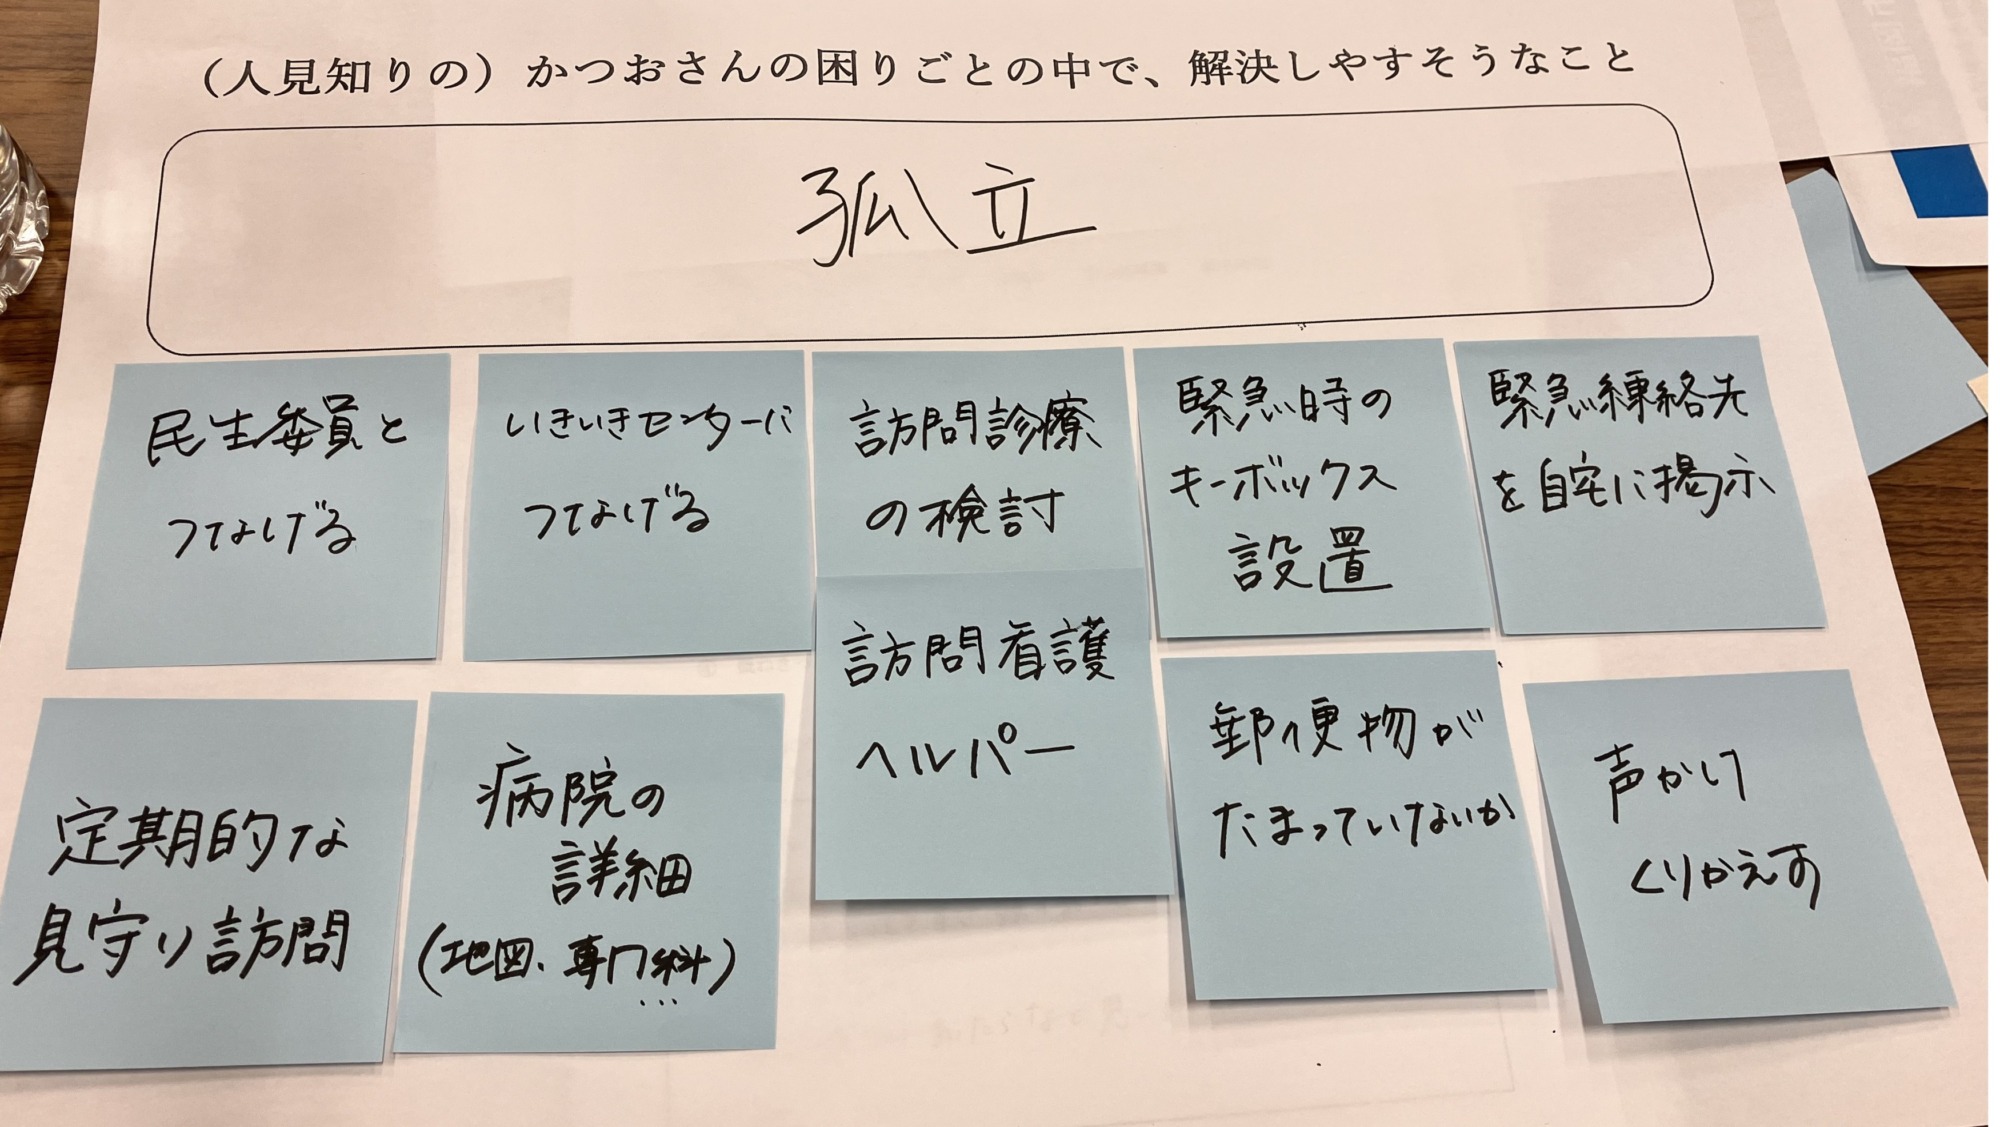 （人見知りの）かつおさんの困りごとの中で、解決しやすそうなこと
孤立
民生委員と
つなげる
いきいきセンターに
つなげる
訪問診療
の検討
緊急時の
キーボックス
設置
緊急連絡先
を自宅に掲示
定期的な
見守り訪問
病院の
詳細
（地図、専門科）
...
訪問看護
ヘルパー
郵便物が
たまっていないか
声かけ
くりかえす